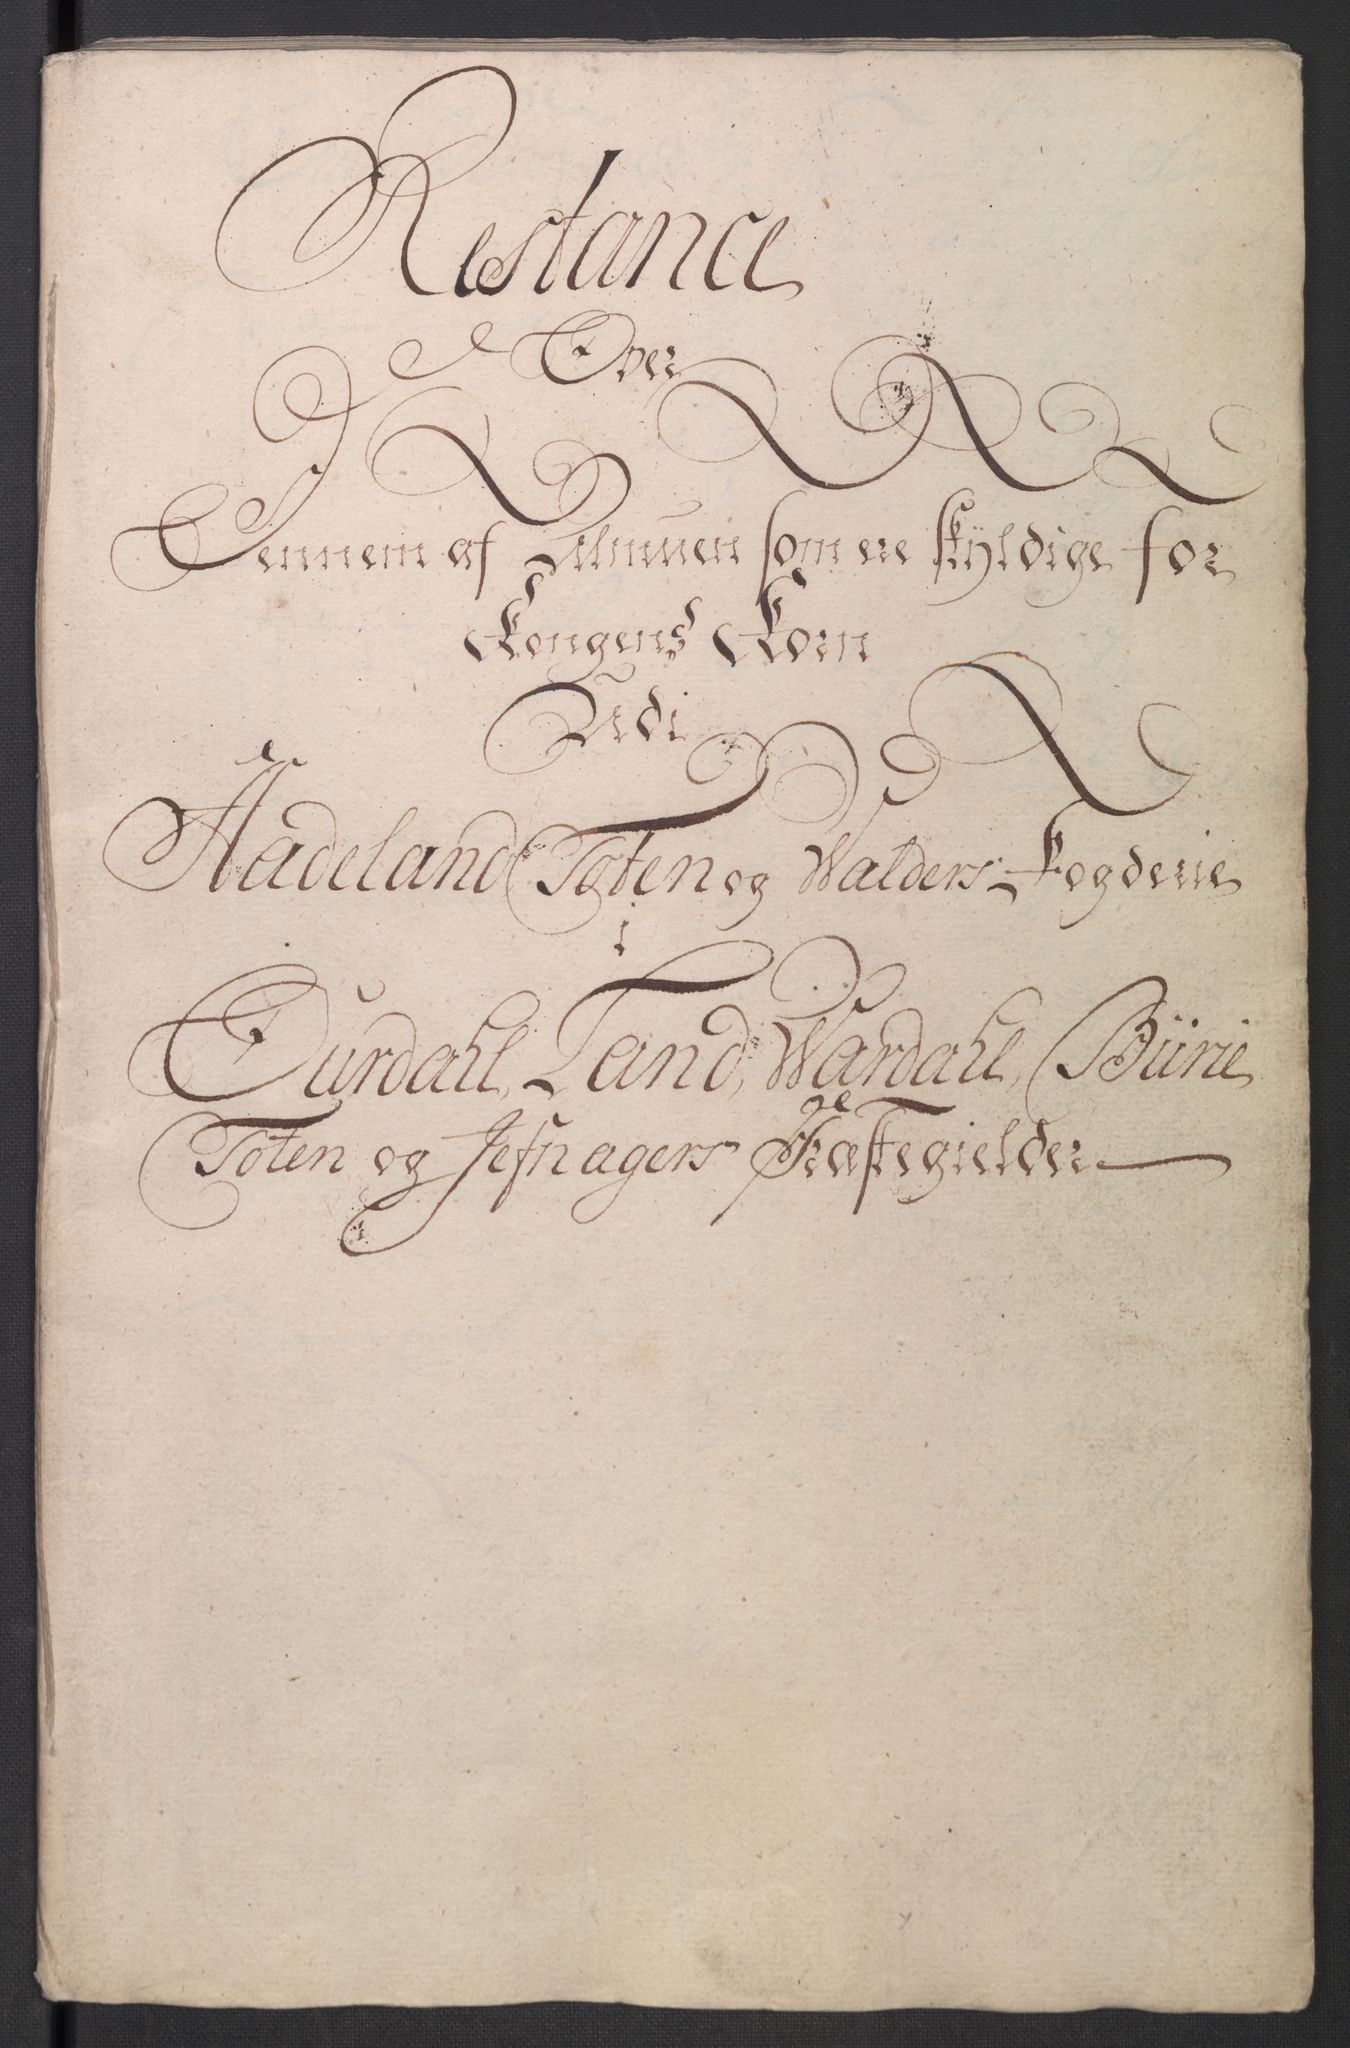 Restance
Over
Dennem af Almuen som ere skÿldige for
Kongens Korn
Udi
Hadeland Toten og Walders Fogderie
i
Ourdahl, Land, Wardahl, Biirie
Toten og Jefnagers Præstegielder